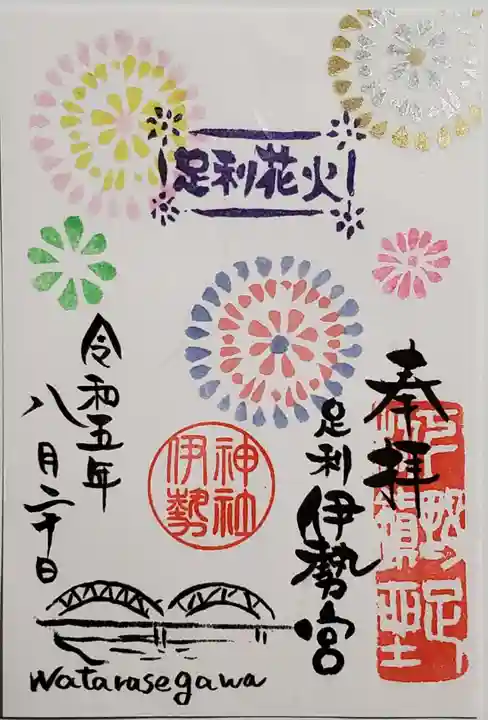 足利花火
奉拝
足利伊勢宮
伊勢
神社
令和五年
八月二十日
Watarasegawa